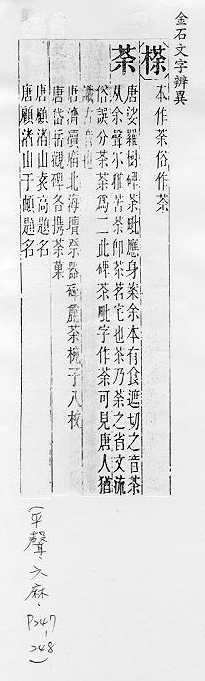 金石文字辨異
本作荼俗作茶
茶
唐娑羅樹碑茶毗應身案余本有食遮切之音荼
从余聲亦猶苦荼即茶茗宅也茶乃荼之省文流
俗誤分荼茶爲二此碑荼毗字作茶可見唐人猶
識古音也
唐濟瀆廟北海壇祭器碑罍茶椀子八枚
唐岱岳觀碑各携茶菓
唐顧渚山袁高題名
唐顧渚山于頔題名
(平聲、六麻、P247, 248)